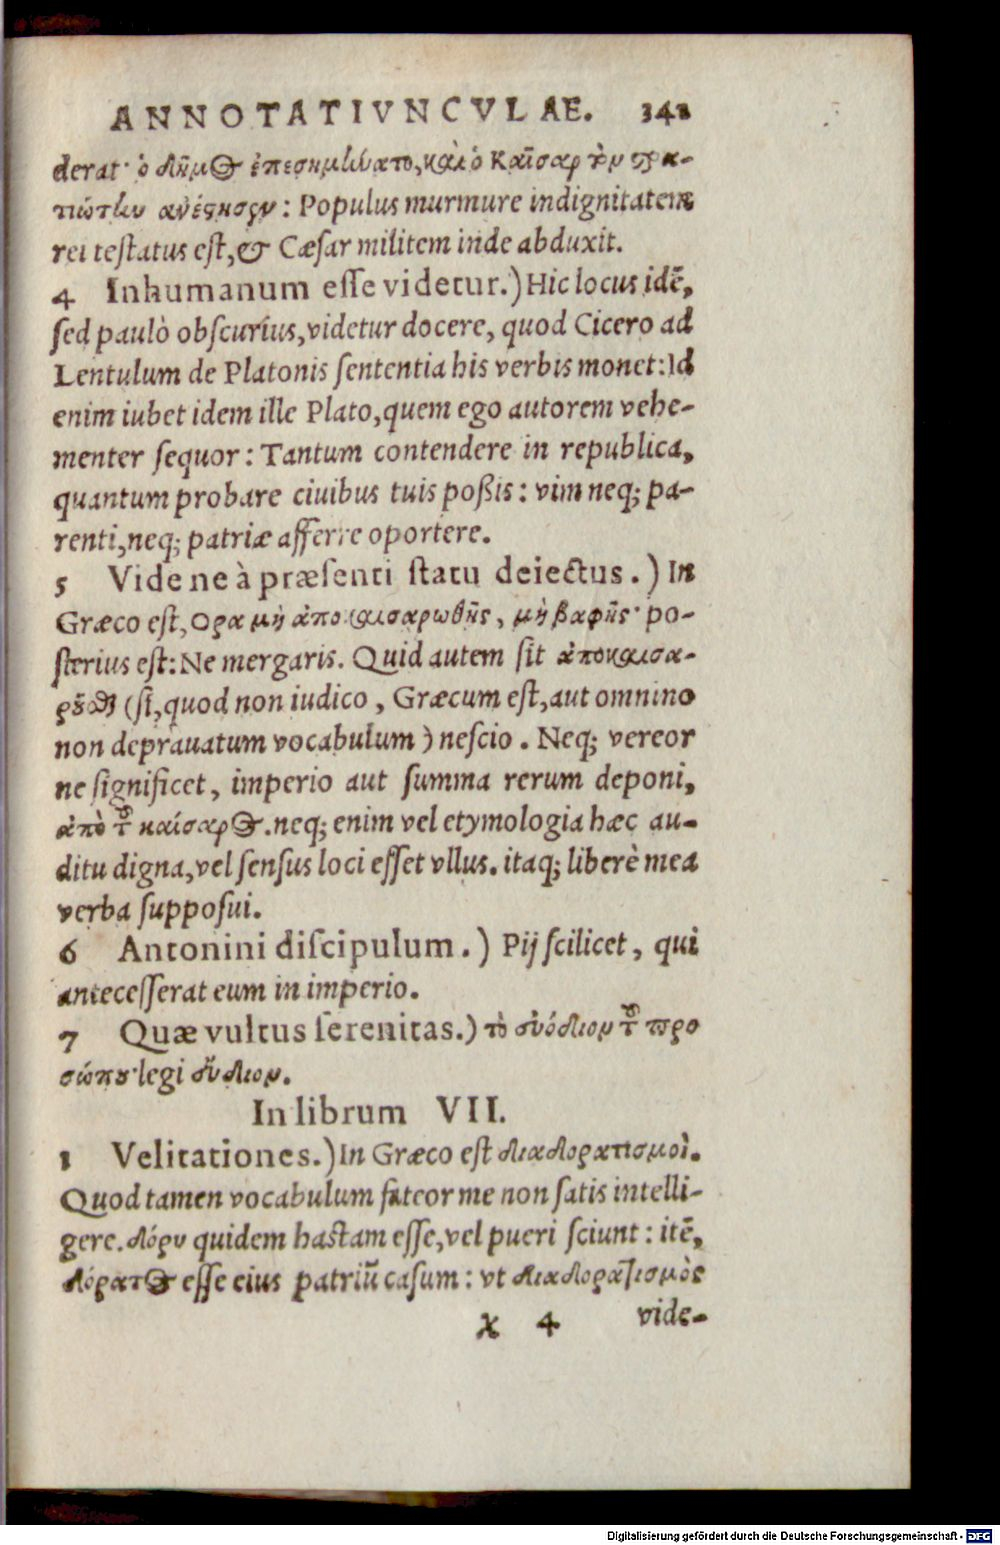 ANNOTATIVNCVLAE. 341
derat· ὁ δῆμος ἐπεσημήνατο, καὶ ὁ Καῖσαρ τὸν στρα-
τιώτην ἀνέστησεν: Populus murmure indignitatem
rei testatus est, & Cæsar militem inde abduxit.
4 Inhumanum esse videtur.) Hic locus idē,
sed paulò obscurius, videtur docere, quod Cicero ad
Lentulum de Platonis sententia his verbis monet: Id
enim iubet idem ille Plato, quem ego autorem vehe-
menter sequor: Tantum contendere in republica,
quantum probare ciuibus tuis poßis: vim neq; pa-
renti, neq; patriæ afferre oportere.
5 Vide ne à præsenti statu deiectus.) In
Græco est, Ορα μὴ ἀποκαισαρωθῆς, μὴ βαφῆς· po-
sterius est: Ne mergaris. Quid autem sit ἀποκαισα-
ροῦσθαι (si, quod non iudico, Græcum est, aut omnino
non deprauatum vocabulum) nescio. Neq; vereor
ne significet, imperio aut summa rerum deponi,
ἀπὸ τοῦ καίσαρος. neq; enim vel etymologia hæc au-
ditu digna, vel sensus loci esset vllus. itaq; liberè mea
verba supposui.
6 Antonini discipulum.) Pij scilicet, qui
antecesserat eum in imperio.
7 Quæ vultus serenitas.) τὸ ἐνόδιον τοῦ προ
σώπου· legi εὔδιον.
In librum VII.
1 Velitationes.) In Græco est διαδορατισμοὶ.
Quod tamen vocabulum fateor me non satis intelli-
gere. δόρυ quidem hastam esse, vel pueri sciunt: itē,
δόρατος esse eius patriū casum: vt διαδορατισμὸς
x 4 vide-
Digitalisierung gefördert durch die Deutsche Forschungsgemeinschaft - DFG